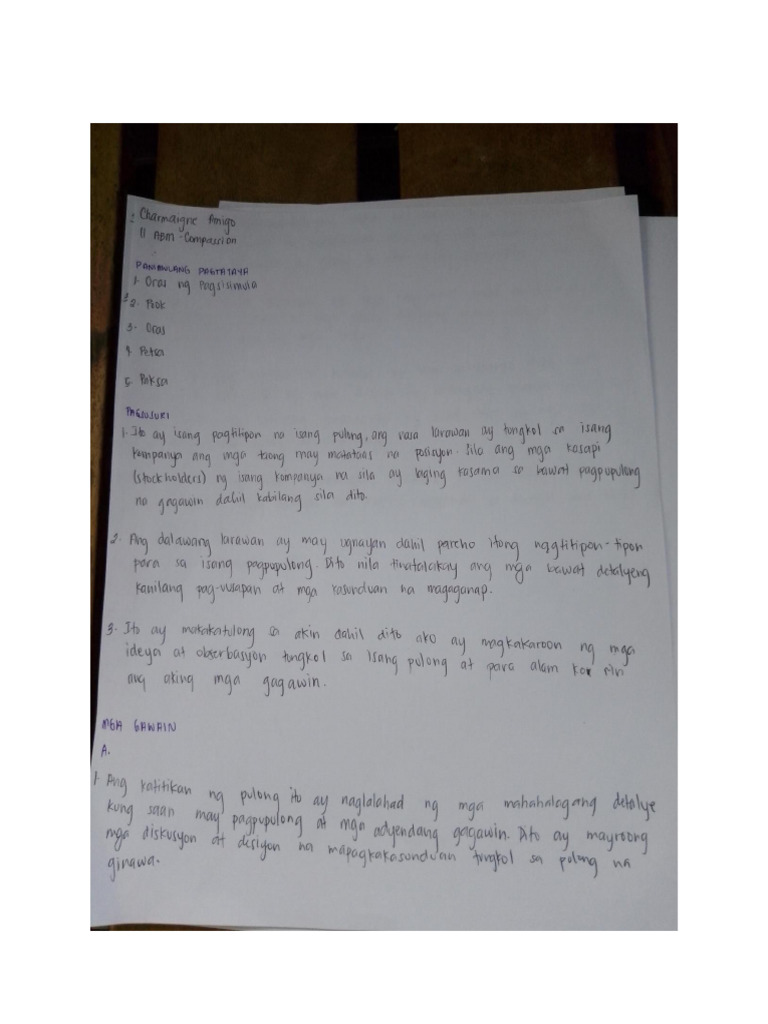 Charmaigne Amigo
11 ABM - Compassion
PANIMULANG PAGTATAYA
1. Oras ng Pagsisimula
2. Pook
3. Oras
4. Petsa
5. Paksa
PAGSUSURI
1. Ito ay isang pagtitipon na isang pulong, ang nasa larawan ay tungkol sa isang
kompanya ang mga taong may matataas na posisyon. Sila ang mga kasapi
(stockholders) ng isang kompanya na sila ay laging kasama sa bawat pagpupulong
na gagawin dahil kabilang sila dito.
2. Ang dalawang larawan ay may ugnayan dahil pareho itong nagtitipon-tipon
para sa isang pagpupulong. Dito nila tinatalakay ang mga bawat detalyeng
kanilang pag-uusapan at mga kasunduan na magaganap.
3. Ito ay makakatulong sa akin dahil dito ako ay magkakaroon ng mga
ideya at obserbasyon tungkol sa isang pulong at para alam ko rin
ang aking mga gagawin.
MGA GAWAIN
A.
1. Ang katitikan ng pulong ito ay naglalahad ng mga mahahalagang detalye
kung saan may pagpupulong at mga adyendang gagawin. Dito ay mayroong
mga diskusyon at desiyon na mapagkakasunduan tungkol sa pulong na
ginawa.